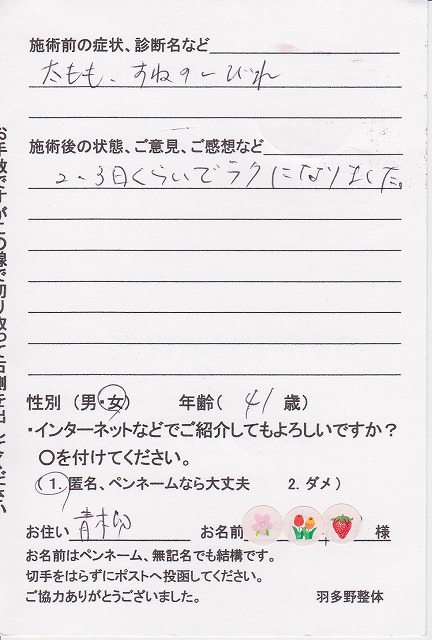 施術前の症状、診断名など
太もも、すねのしびれ
施術後の状態、ご意見、ご感想など
2~3日くらいでラクになりました。
性別（男・女） 年齢（ 41 歳）
・インターネットなどでご紹介してもよろしいですか？
〇を付けてください。
（1. 匿名、ペンネームなら大丈夫 2. ダメ）
お住い 青柳 お名前 様
お名前はペンネーム、無記名でも結構です。
切手をはらずにポストへ投函してください。
ご協力ありがとうございました。 羽多野整体